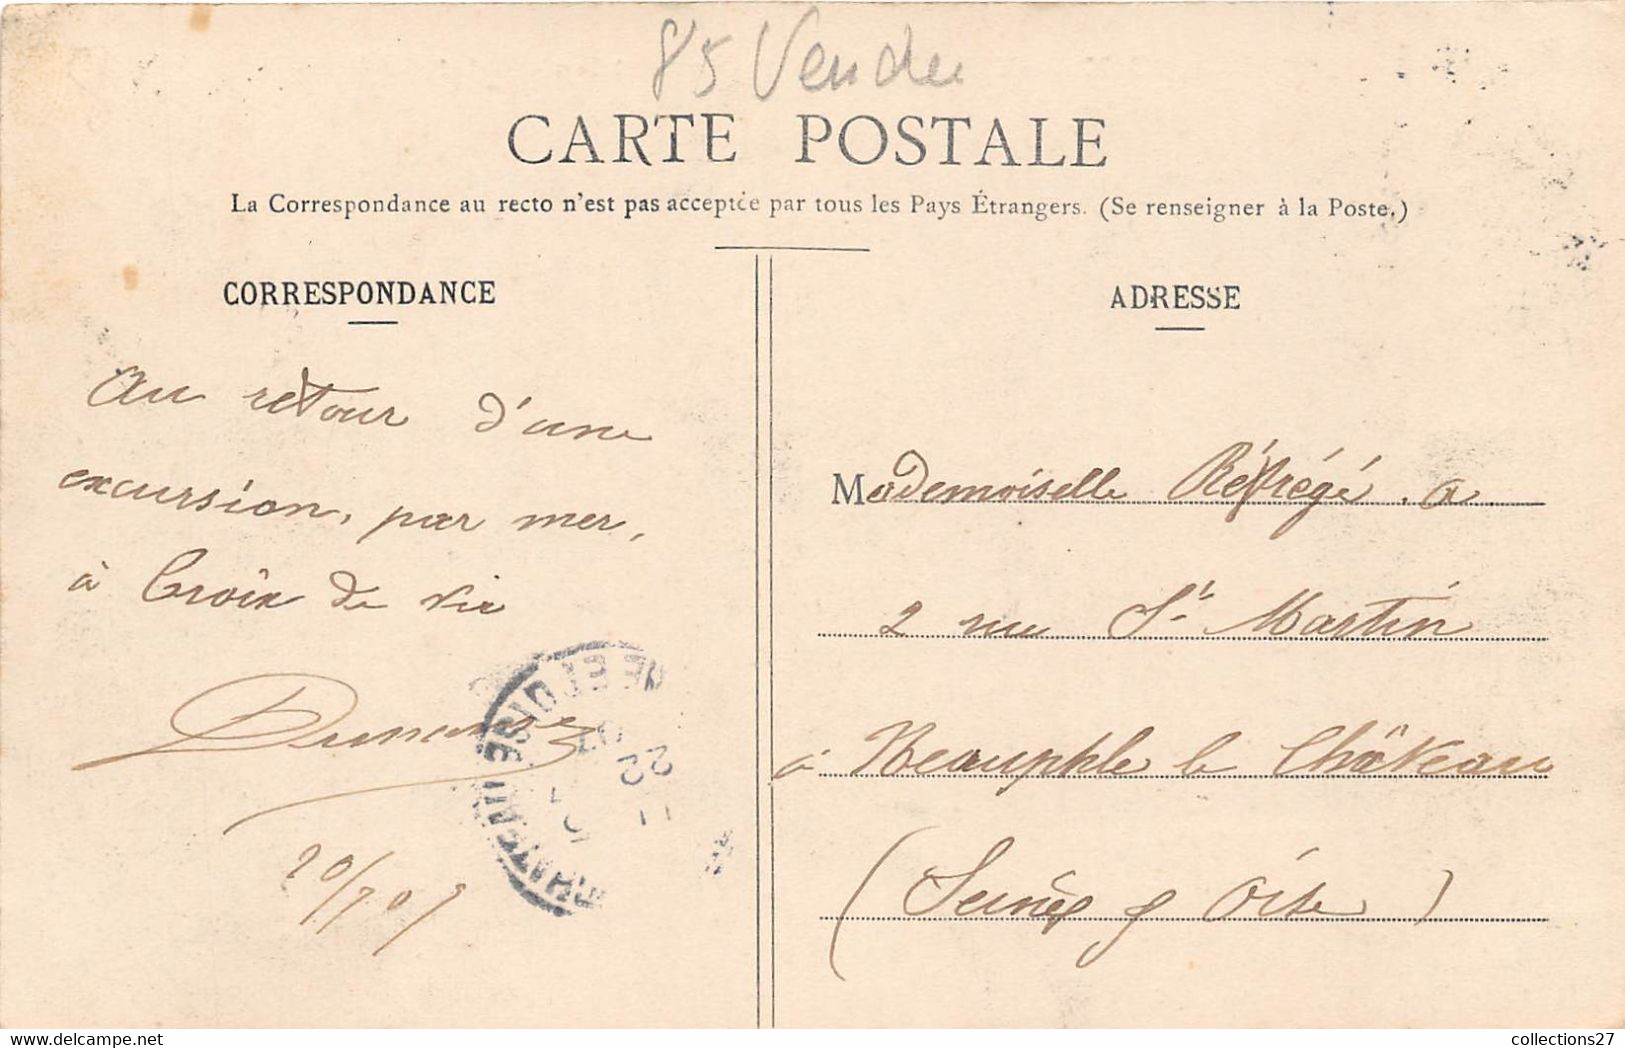 85 Vendée
CARTE POSTALE
La Correspondance au recto n'est pas acceptée par tous les Pays Étrangers. (Se renseigner à la Poste.)
CORRESPONDANCE
Au retour d'une
excursion, par mer,
à Croix de vie
20/7 07
ADRESSE
Mademoiselle
2 rue St Martin
à Neauphle le Château
(Seine & Oise)
SEINE ET OISE
22
collections27